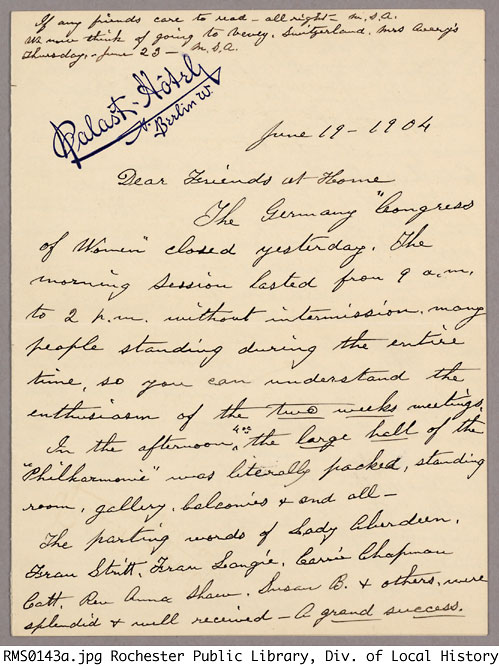 If any friends care to read - all right - M.S.A.
We now think of going to Vevey, Switzerland, Mrs Avery's
Thursday, - June 23 - M.S.A.
Palast-Hôtel
Berlin W.
June 19 - 1904
Dear Friends at Home
The Germany "Congress
of Women" closed yesterday. The
morning session lasted from 9 a.m.
to 2 p.m. without intermission, many
people standing during the entire
time, so you can understand the
enthusiasm of the two weeks meetings.
In the afternoon, the large hall of the
"Philharmonie" was literally packed, standing
room, gallery, balconies & end all -
The parting words of Lady Aberdeen,
Frau Stritt, Frau Langie, Carrie Chapman
Catt, Rev Anna Shaw, Susan B. & others, were
splendid & well received - A grand success.
RMS0143a.jpg Rochester Public Library, Div. of Local History